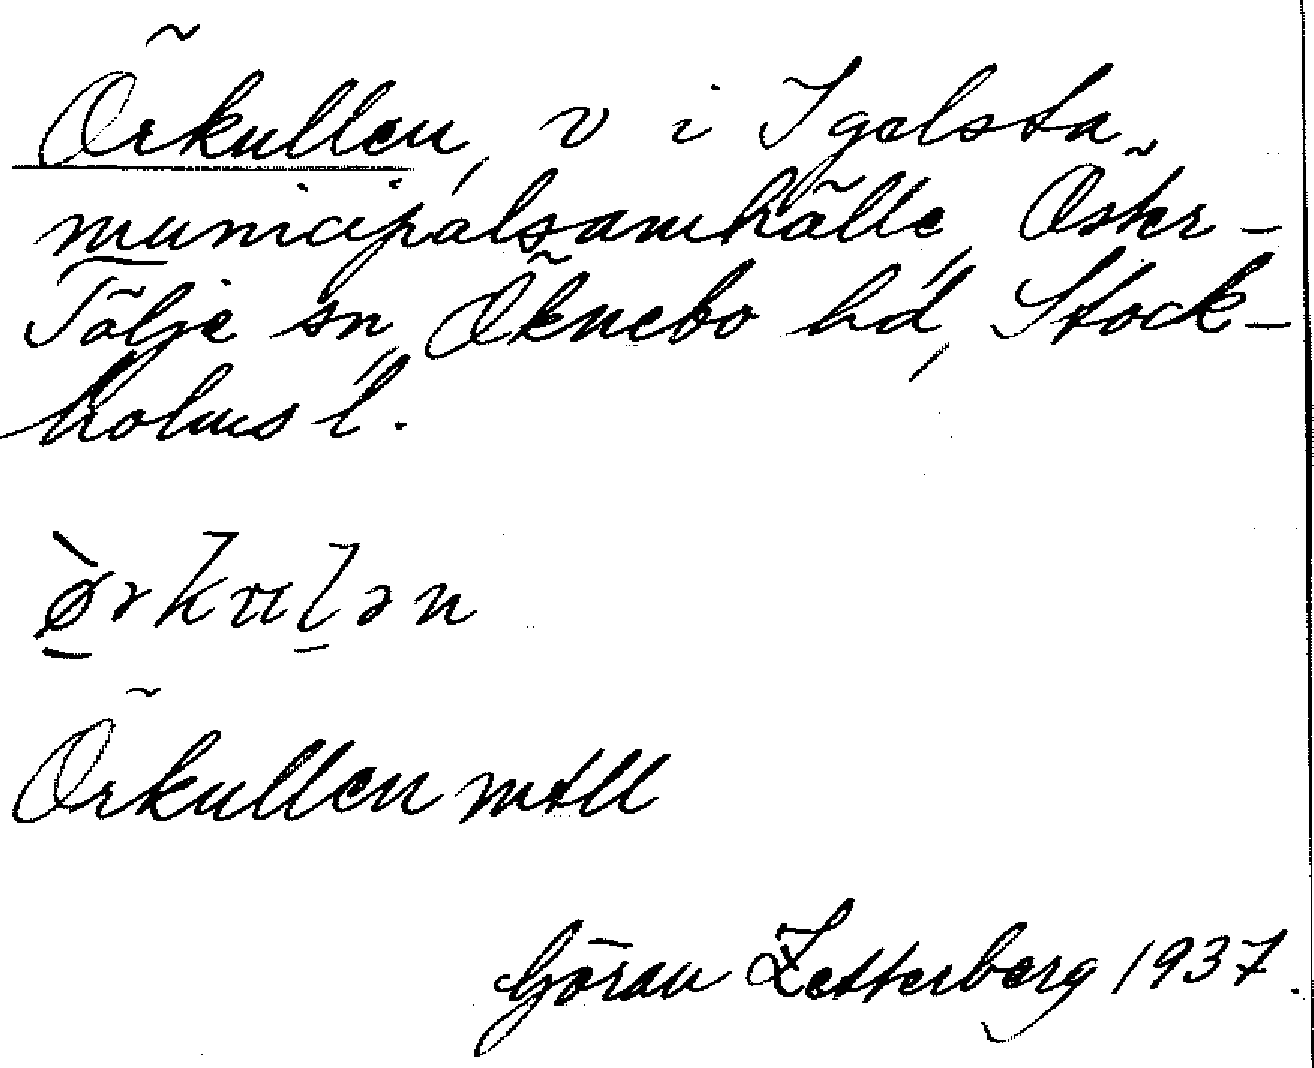 Örkullen, v i Igelsta
municipalsamhälle, Öster-
Tälje sn, Öknebo hd, Stock-
holms l.
ø̀rkulən
Örkullen mtll
Göran Zetterberg 1937.